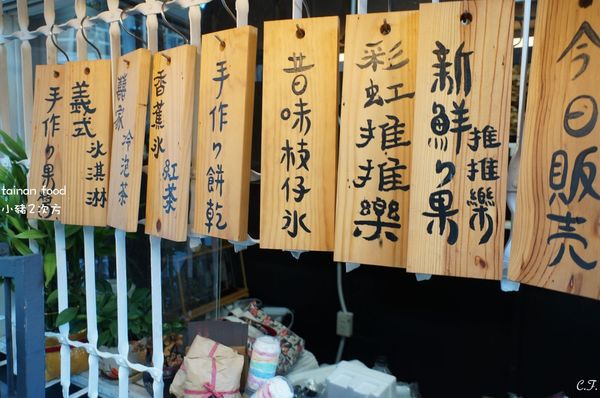 手作り果醬
義式
冰淇淋
囍家
冷泡茶
香蕉冰
紅茶
手作り餅乾
昔味枝仔冰
彩虹推推樂
新鮮り果
推推樂
今日販売
tainan food
小豬2次方
C.F.